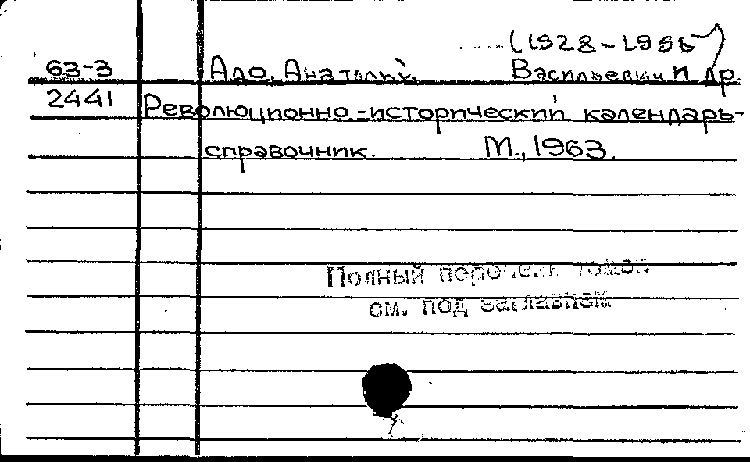 (1928-1995)
63-3 Адо, Анатолий Васильевич и др.
2441 Революционно-исторический календарь-
справочник. М., 1963.
Полный перечень томов
см. под заглавием